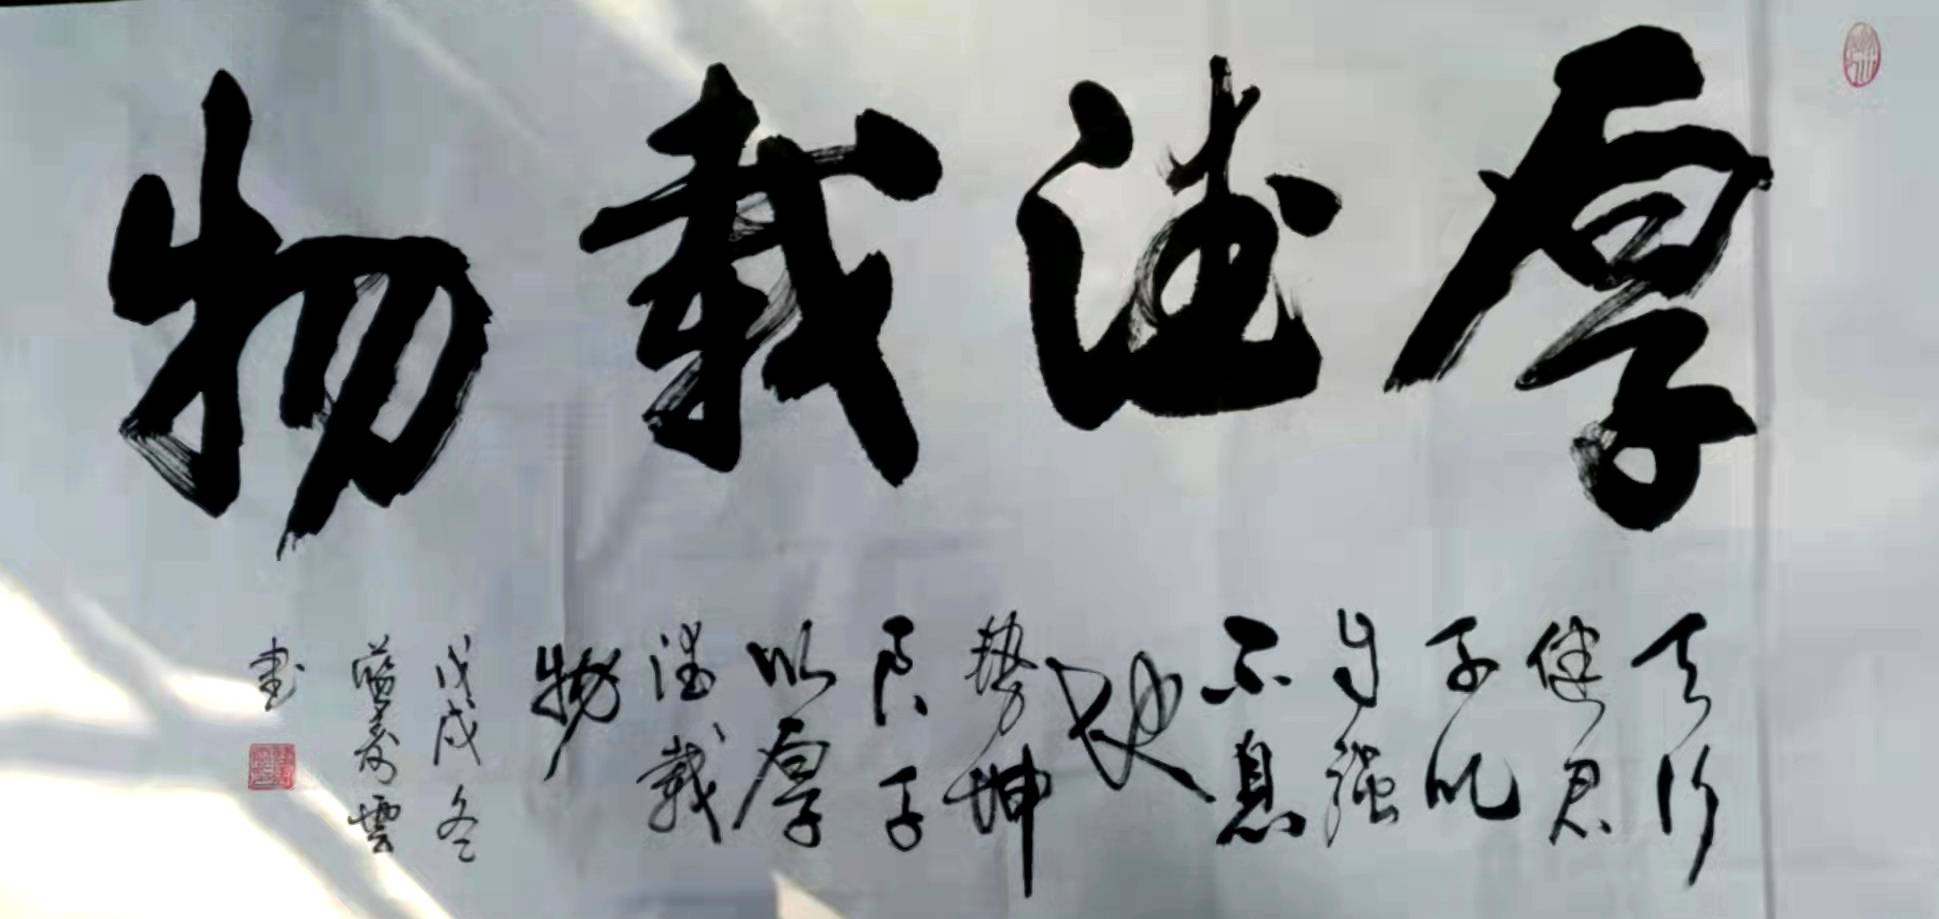 厚德載物
天行
健君
子以
自强
不息
地
势坤
君子
以厚
德載
物
戊戌冬
藍寿雲
書